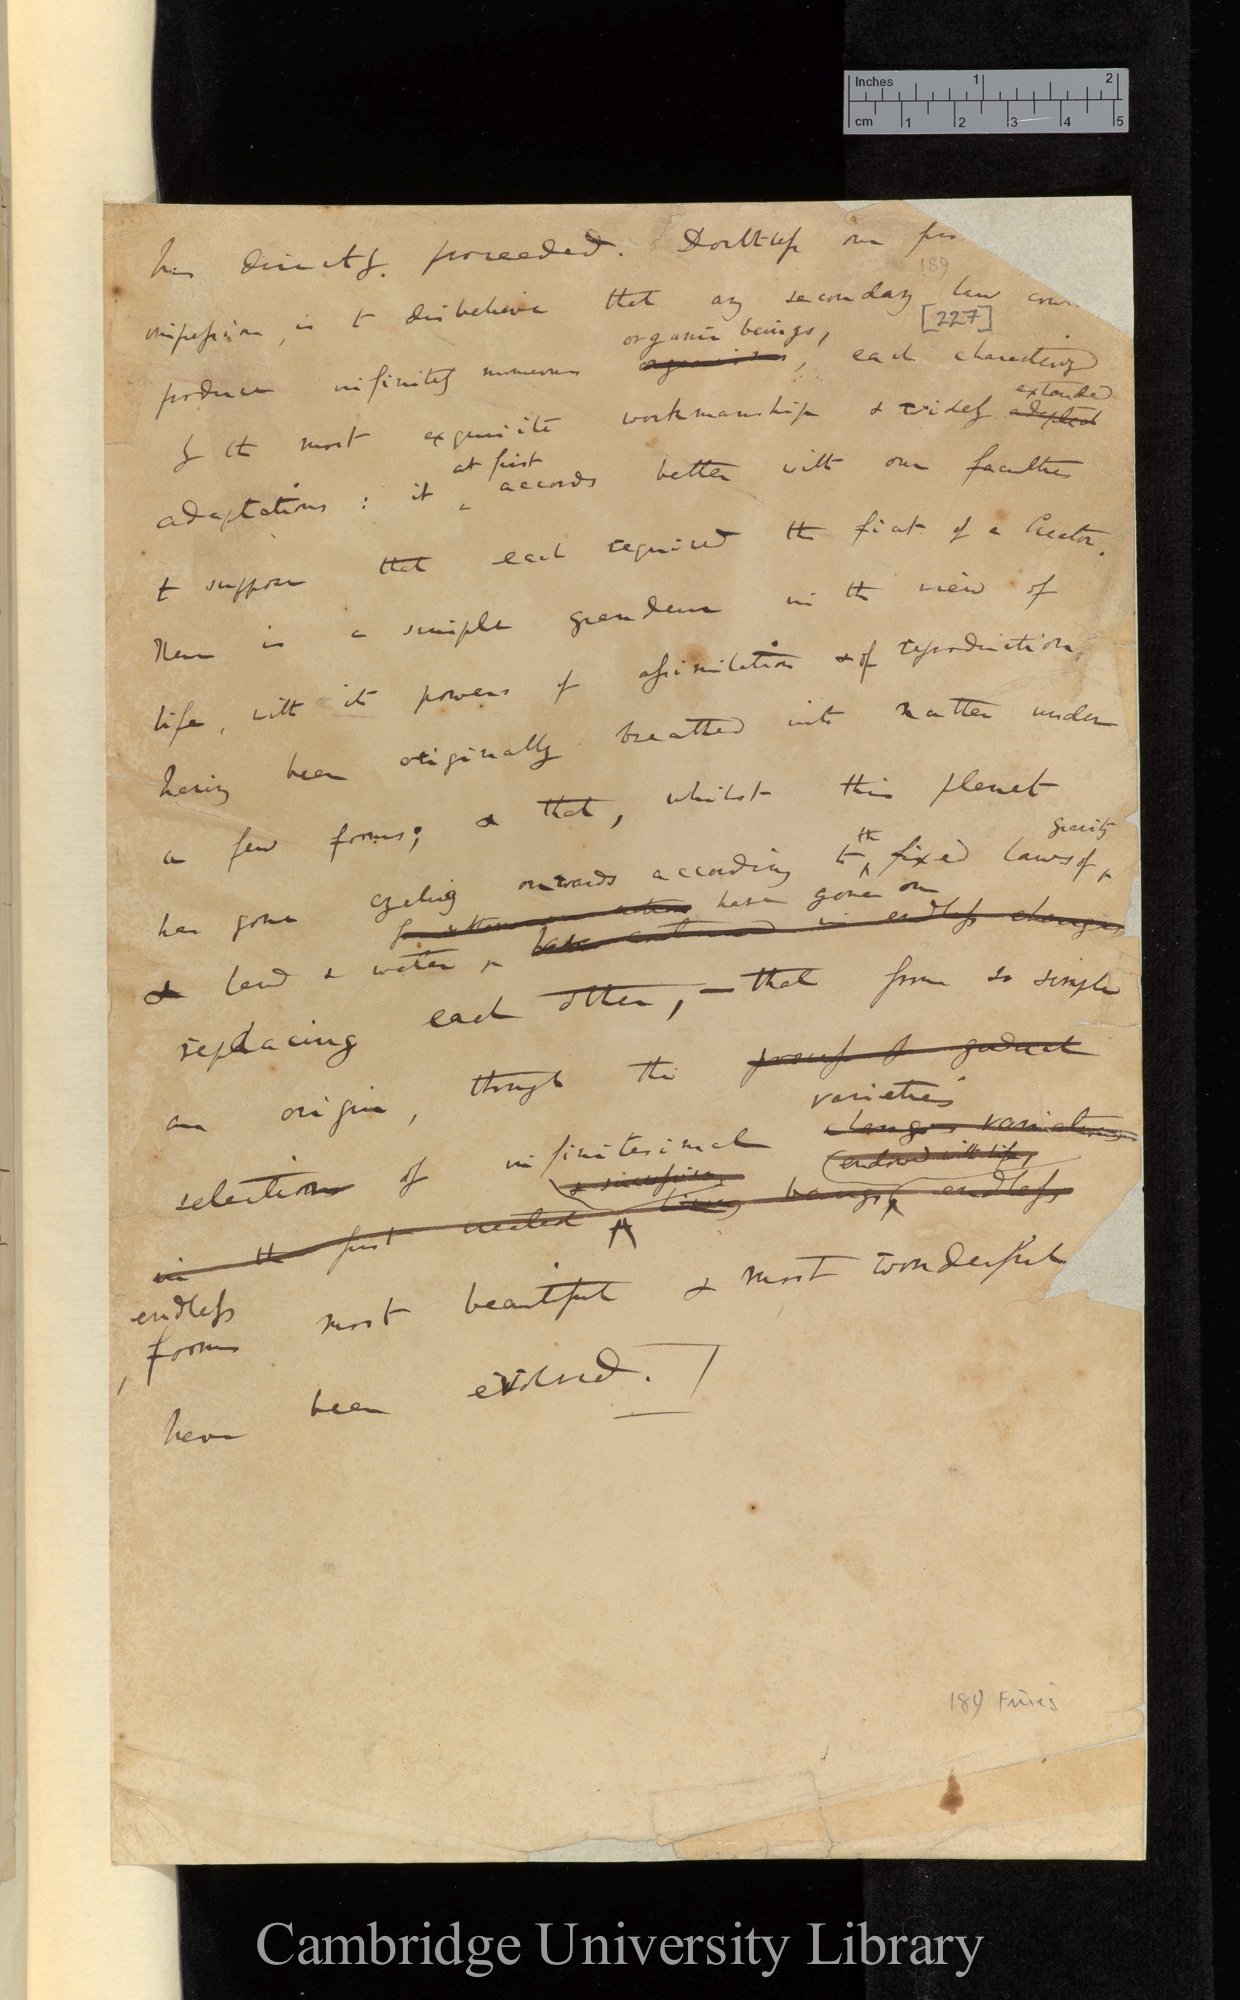 Inches 1 2
cm 1 2 3 4 5
has directly proceeded. Doubtless our
189
impression, is to disbelieve that any secondary law
[227]
organic beings,
produce infinitely numerous organisms, each characterized
extended
by the most exquisite workmanship & widely adapted
at first
adaptations: it ^ accords better with our faculties
to suppose that each required the fiat of a Creator.
There is a simple grandeur in the view of
life, with its powers of assimilation & of reproduction,
having been originally breathed into matter under
a few forms; & that, whilst this planet
the gravity
has gone cycling onwards according to ^ fixed laws of ^
have gone on
& land & water, in endless changes
replacing each other, — that from so simple
an origin, though the process of gradual
varieties
selection of infinitesimal changes variations
(endowed with life)
in the first created beings, endless
endless
forms most beautiful & most wonderful
have been evolved.
189 Finis
Cambridge University Library